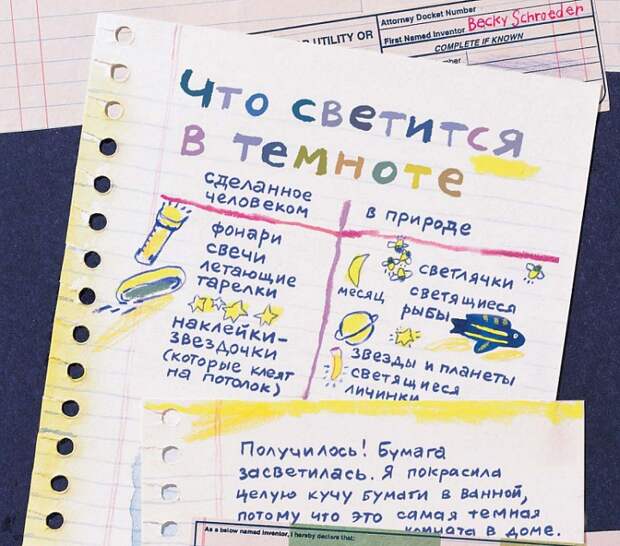 Attorney Docket Number
First Named Inventor Becky Schroeder
COMPLETE IF KNOWN
UTILITY OR
Что светится
в темноте
сделанное
человеком
в природе
фонари
свечи
летающие
тарелки
наклейки-
звездочки
(которые клеят
на потолок)
светлячки
месяц
светящиеся
рыбы
звезды и планеты
светящиеся
личинки
Получилось! Бумага
засветилась. Я покрасила
целую кучу бумаги в ванной,
потому что это самая темная
комната в доме.
As a below named inventor, I hereby declare that: